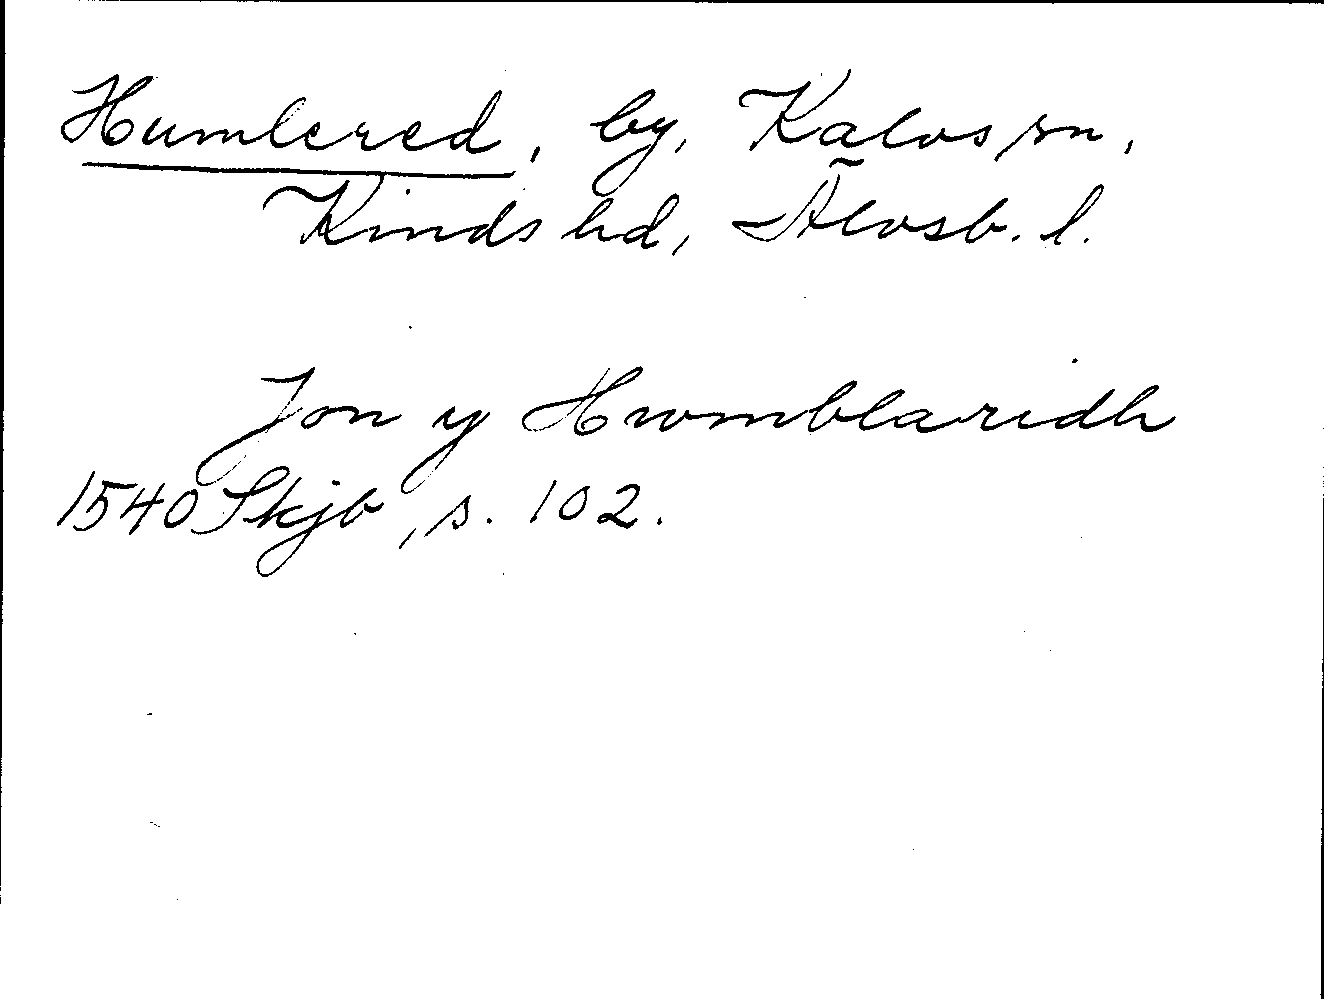 Humlered, by, Kalvs sn,
Kinds hd, Älvsb. l.
Jon y Hwmblaridh
1540 Skjb, s. 102.